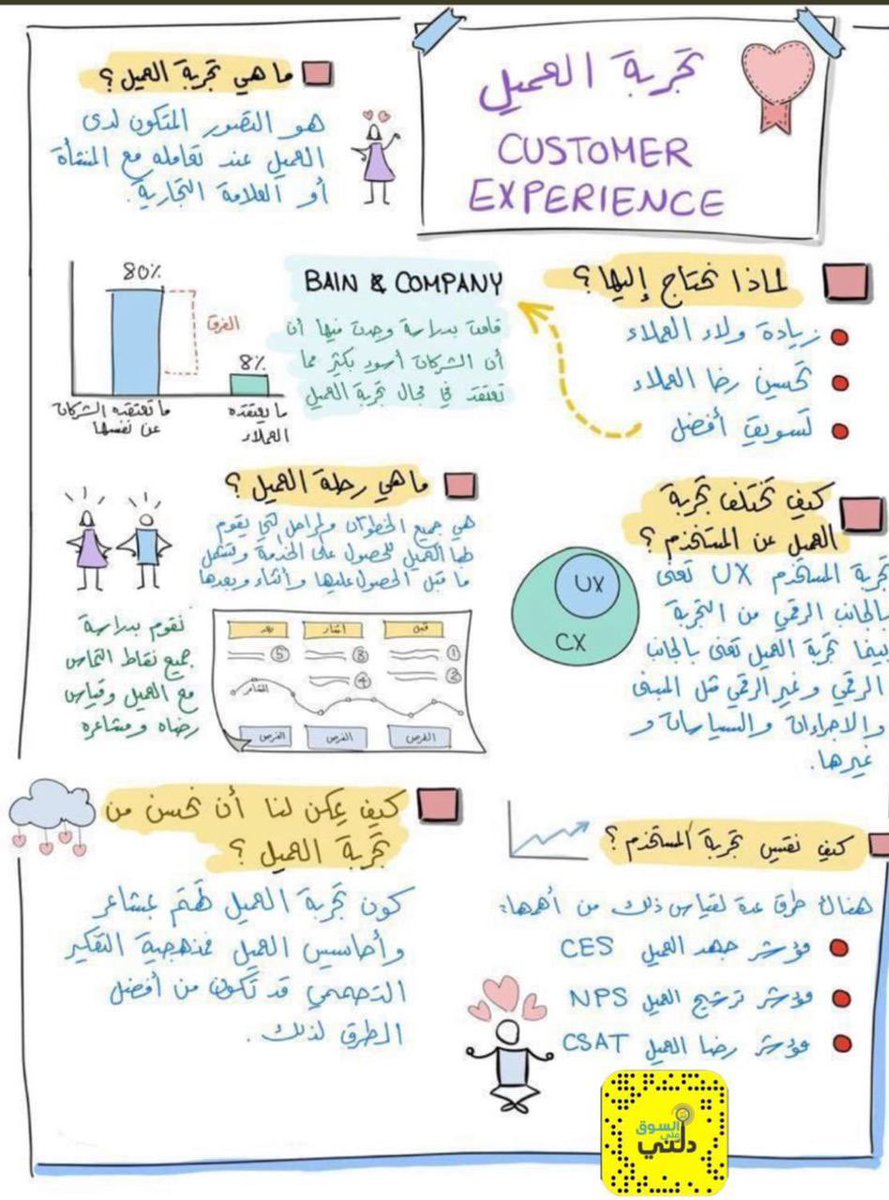 تجربة العميل
CUSTOMER
EXPERIENCE
ما هي تجربة العميل؟
هو التصور المتكون لدى
العميل عند تعامله مع المنشأة
أو العلامة التجارية.
لماذا نحتاج إليها؟
زيادة ولاء العملاء
تحسين رضا العملاء
تسويق أفضل
BAIN & COMPANY
قامت بدراسة وجدت فيها أن
أن الشركات أسوء بكثير مما
تعتقد في مجال تجربة العميل
80%
الفرق
8%
ما تعتقده الشركات
عن نفسها
ما يعتقده
العملاء
كيف تختلف تجربة
العميل عن المستخدم؟
تجربة المستخدم UX تعنى
بالجانب الرقمي من التجربة
بينما تجربة العميل تعنى بالجانب
الرقمي وغير الرقمي مثل المبنى
والاجراءات والسياسات و
غيرها.
UX
CX
ما هي رحلة العميل؟
هي جميع الخطوات والمراحل التي يقوم
بها العميل للحصول على الخدمة وتشمل
ما قبل الحصول عليها وأثناء وبعدها
نقوم بدراسة
جميع نقاط التماس
مع العميل وقياس
رضاه ومشاعره
قبل
أثناء
بعد
1
2
3
4
5
المشاعر
الفرص
الفرص
الفرص
كيف نقيس تجربة المستخدم؟
هناك طرق عدة لقياس ذلك من أهمها:
مؤشر جهد العميل CES
مؤشر ترشيح العميل NPS
مؤشر رضا العميل CSAT
كيف يمكن لنا أن نحسن من
تجربة العميل؟
كون تجربة العميل تهتم بمشاعر
وأحاسيس العميل فمنهجية التفكير
التصممي قد تكون من أفضل
الطرق لذلك.
دلني
على
السوق